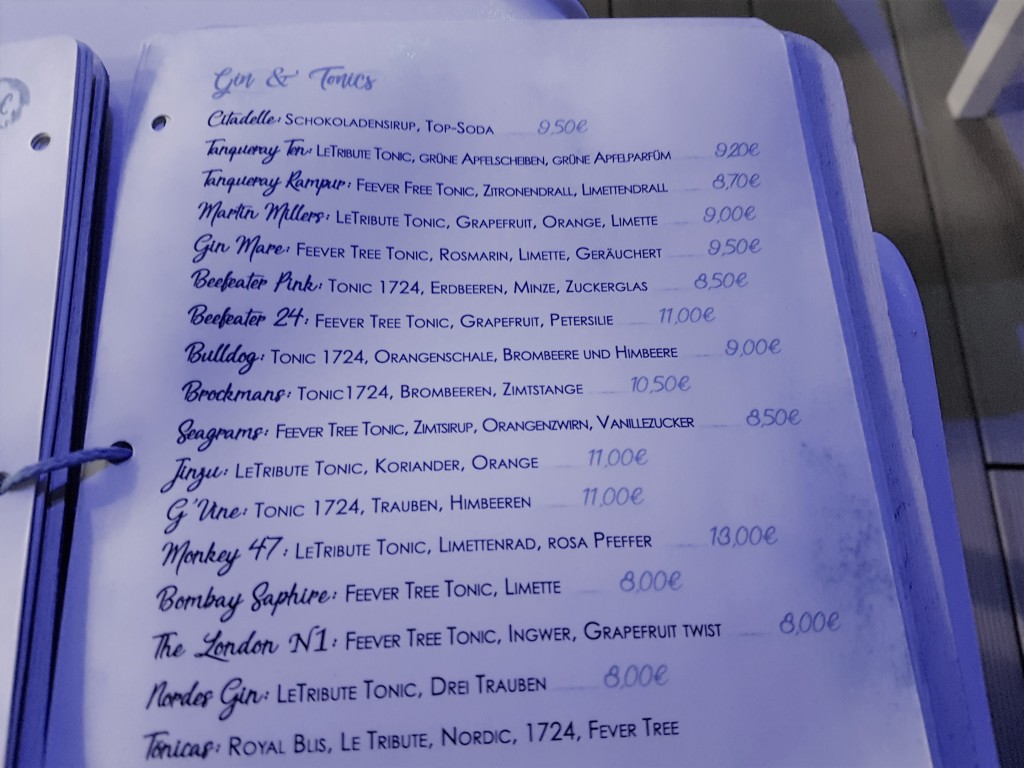 Gin & Tonics
Citadelle: Schokoladensirup, Top-Soda 9,50€
Tanqueray Ten: LeTribute Tonic, grüne Apfelscheiben, grüne Apfelparfüm 9,20€
Tanqueray Rampur: Feever Free Tonic, Zitronendrall, Limettendrall 8,70€
Martin Millers: LeTribute Tonic, Grapefruit, Orange, Limette 9,00€
Gin Mare: Feever Tree Tonic, Rosmarin, Limette, Geräuchert 9,50€
Beefeater Pink: Tonic 1724, Erdbeeren, Minze, Zuckerglas 8,50€
Beefeater 24: Feever Tree Tonic, Grapefruit, Petersilie 11,00€
Bulldog: Tonic 1724, Orangenschale, Brombeere und Himbeere 9,00€
Brockmans: Tonic1724, Brombeeren, Zimtstange 10,50€
Seagrams: Feever Tree Tonic, Zimtsirup, Orangenzwirn, Vanillezucker 8,50€
Jinzu: LeTribute Tonic, Koriander, Orange 11,00€
G'Vine: Tonic 1724, Trauben, Himbeeren 11,00€
Monkey 47: LeTribute Tonic, Limettenrad, rosa Pfeffer 13,00€
Bombay Saphire: Feever Tree Tonic, Limette 8,00€
The London N1: Feever Tree Tonic, Ingwer, Grapefruit twist 8,00€
Nordes Gin: LeTribute Tonic, Drei Trauben 8,00€
Tónicas: Royal Blis, Le Tribute, Nordic, 1724, Fever Tree